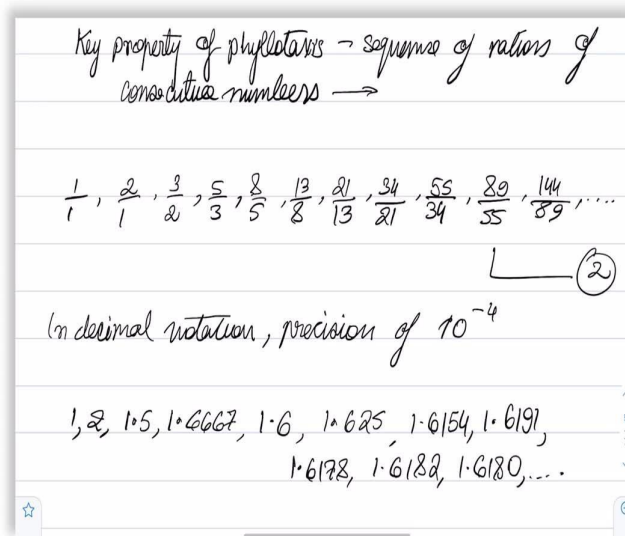 Key property of phyllotaxis → sequence of rations of
consecutive numbers →
1/1, 2/1, 3/2, 5/3, 8/5, 13/8, 21/13, 34/21, 55/34, 89/55, 144/89, ....
2
In decimal notation, precision of 10⁻⁴
1, 2, 1.5, 1.6667, 1.6, 1.625, 1.6154, 1.6191,
1.6178, 1.6182, 1.6180, ....